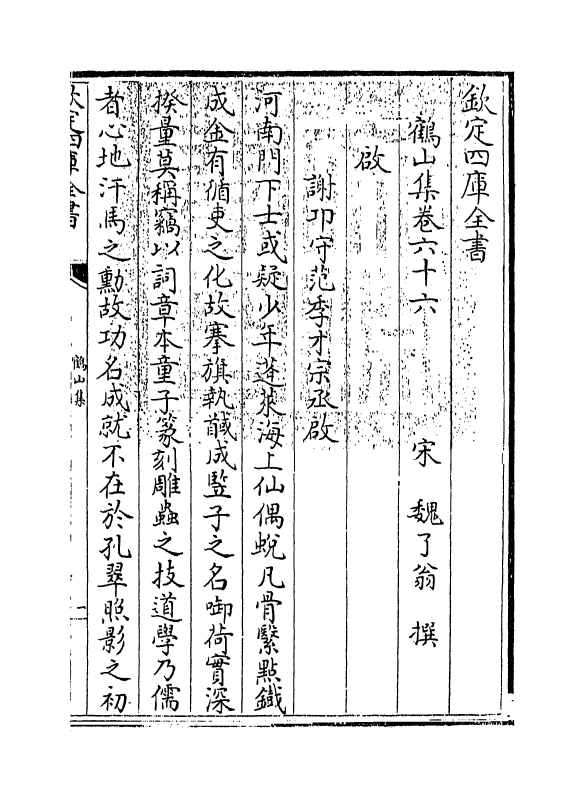 欽定四庫全書
鶴山集卷六十六
宋 魏了翁 撰
啟
謝卭守范季才宗丞啟
河南門下士或疑少年蓬萊海上仙偶蛻凡骨繄㸃鐵
成金有循吏之化故搴旗執馘成竪子之名啣荷實深
揆量莫稱竊以詞章本童子篆刻雕蟲之技道學乃儒
者心地汗馬之勲故功名成就不在於孔翠照影之初
欽定四庫全書
鶴山集
一